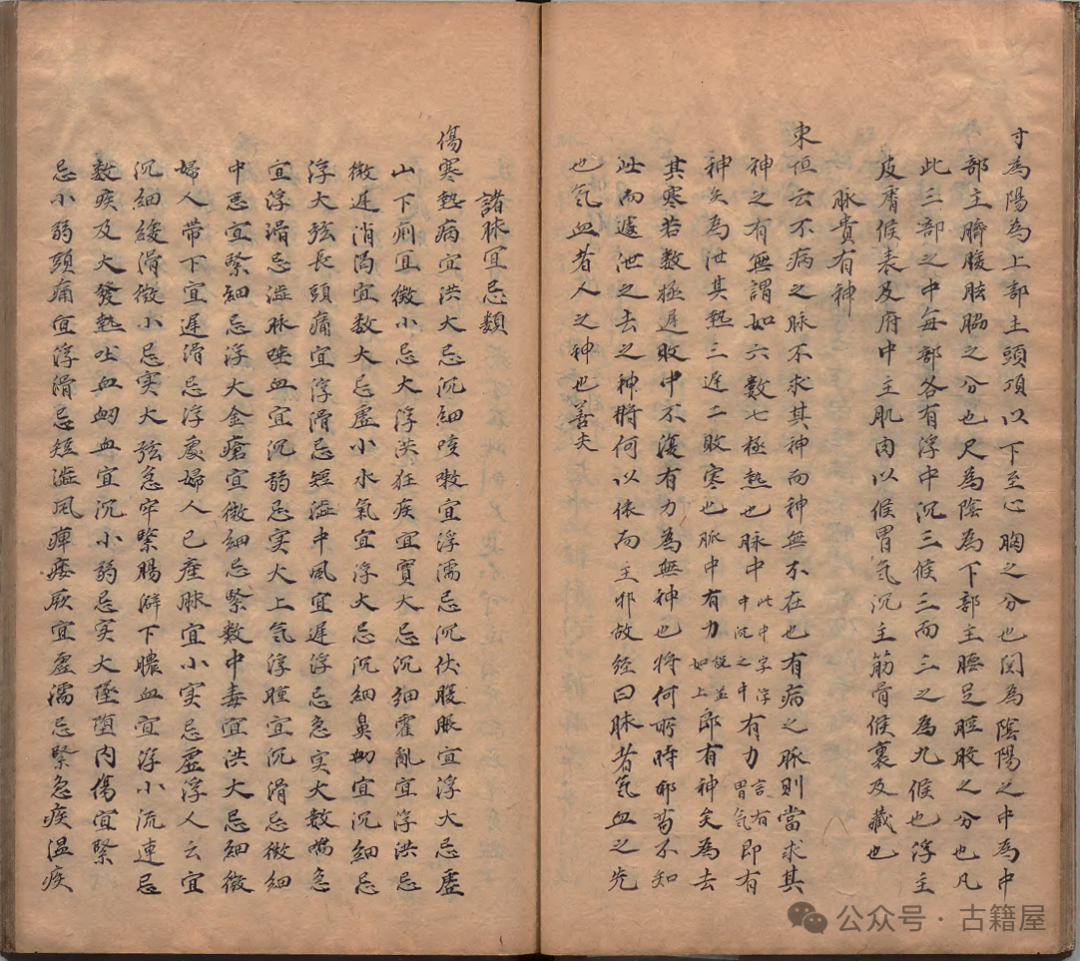 寸為陽為上部主頭項以下至心胸之分也関為陰陽之中為中
部主臍腹胠脇之分也尺為陰為下部主腰足脛股之分也凡
此三部之中每部各有浮中沉三候三而三之為九候也浮主
皮膚候表及府中主肌肉以候胃氣沉主筋骨候裏及藏也
脉貴有神
東垣云不病之脉不求其神而神無不在也有病之脉則當求其
神之有無謂如六數七極熱也脉中此中字浮中沉之中有力言有胃氣即有
神矣為泄其熱三遲二敗寒也脈中有力說並如上郎有神矣為去
其寒若数極遲敗中不復有力為無神也將何所恃耶苟不知
此而遽泄之去之神將何以依而主邪故經曰脉者氣血之先
也氣血者人之神也善夫
諸脉宜忌類
傷寒熱病宜洪大忌沉細咳嗽宜浮濡忌沉伏腹脹宜浮大忌虛
山下痢宜微小忌大浮洪狂疾宜實大忌沉細霍亂宜浮洪忌
微遲消渴宜数大忌虛小水氣宜浮大忌沉細鼻衂宜沉細忌
浮大弦長頭痛宜浮滑忌短澁中風宜遲浮忌急实大数喘急
宜浮滑忌澁脉唾血宜沉弱忌实大上气浮腫宜沉滑忌微細
中惡宜緊細忌浮大金瘡宜微細忌緊数中毒宜洪大忌細微
婦人带下宜遲滑忌浮虛婦人已產脉宜小实忌虛浮人云宜
沉細緩滑微小忌实大弦急牢緊腸澼下膿血宜浮小流連忌
数疾及大發熱吐血衂血宜沉小弱忌实大墜堕内傷宜緊
忌小弱頭痛宜浮滑忌短澁風痺痿厥宜虛濡忌緊急疾温疾